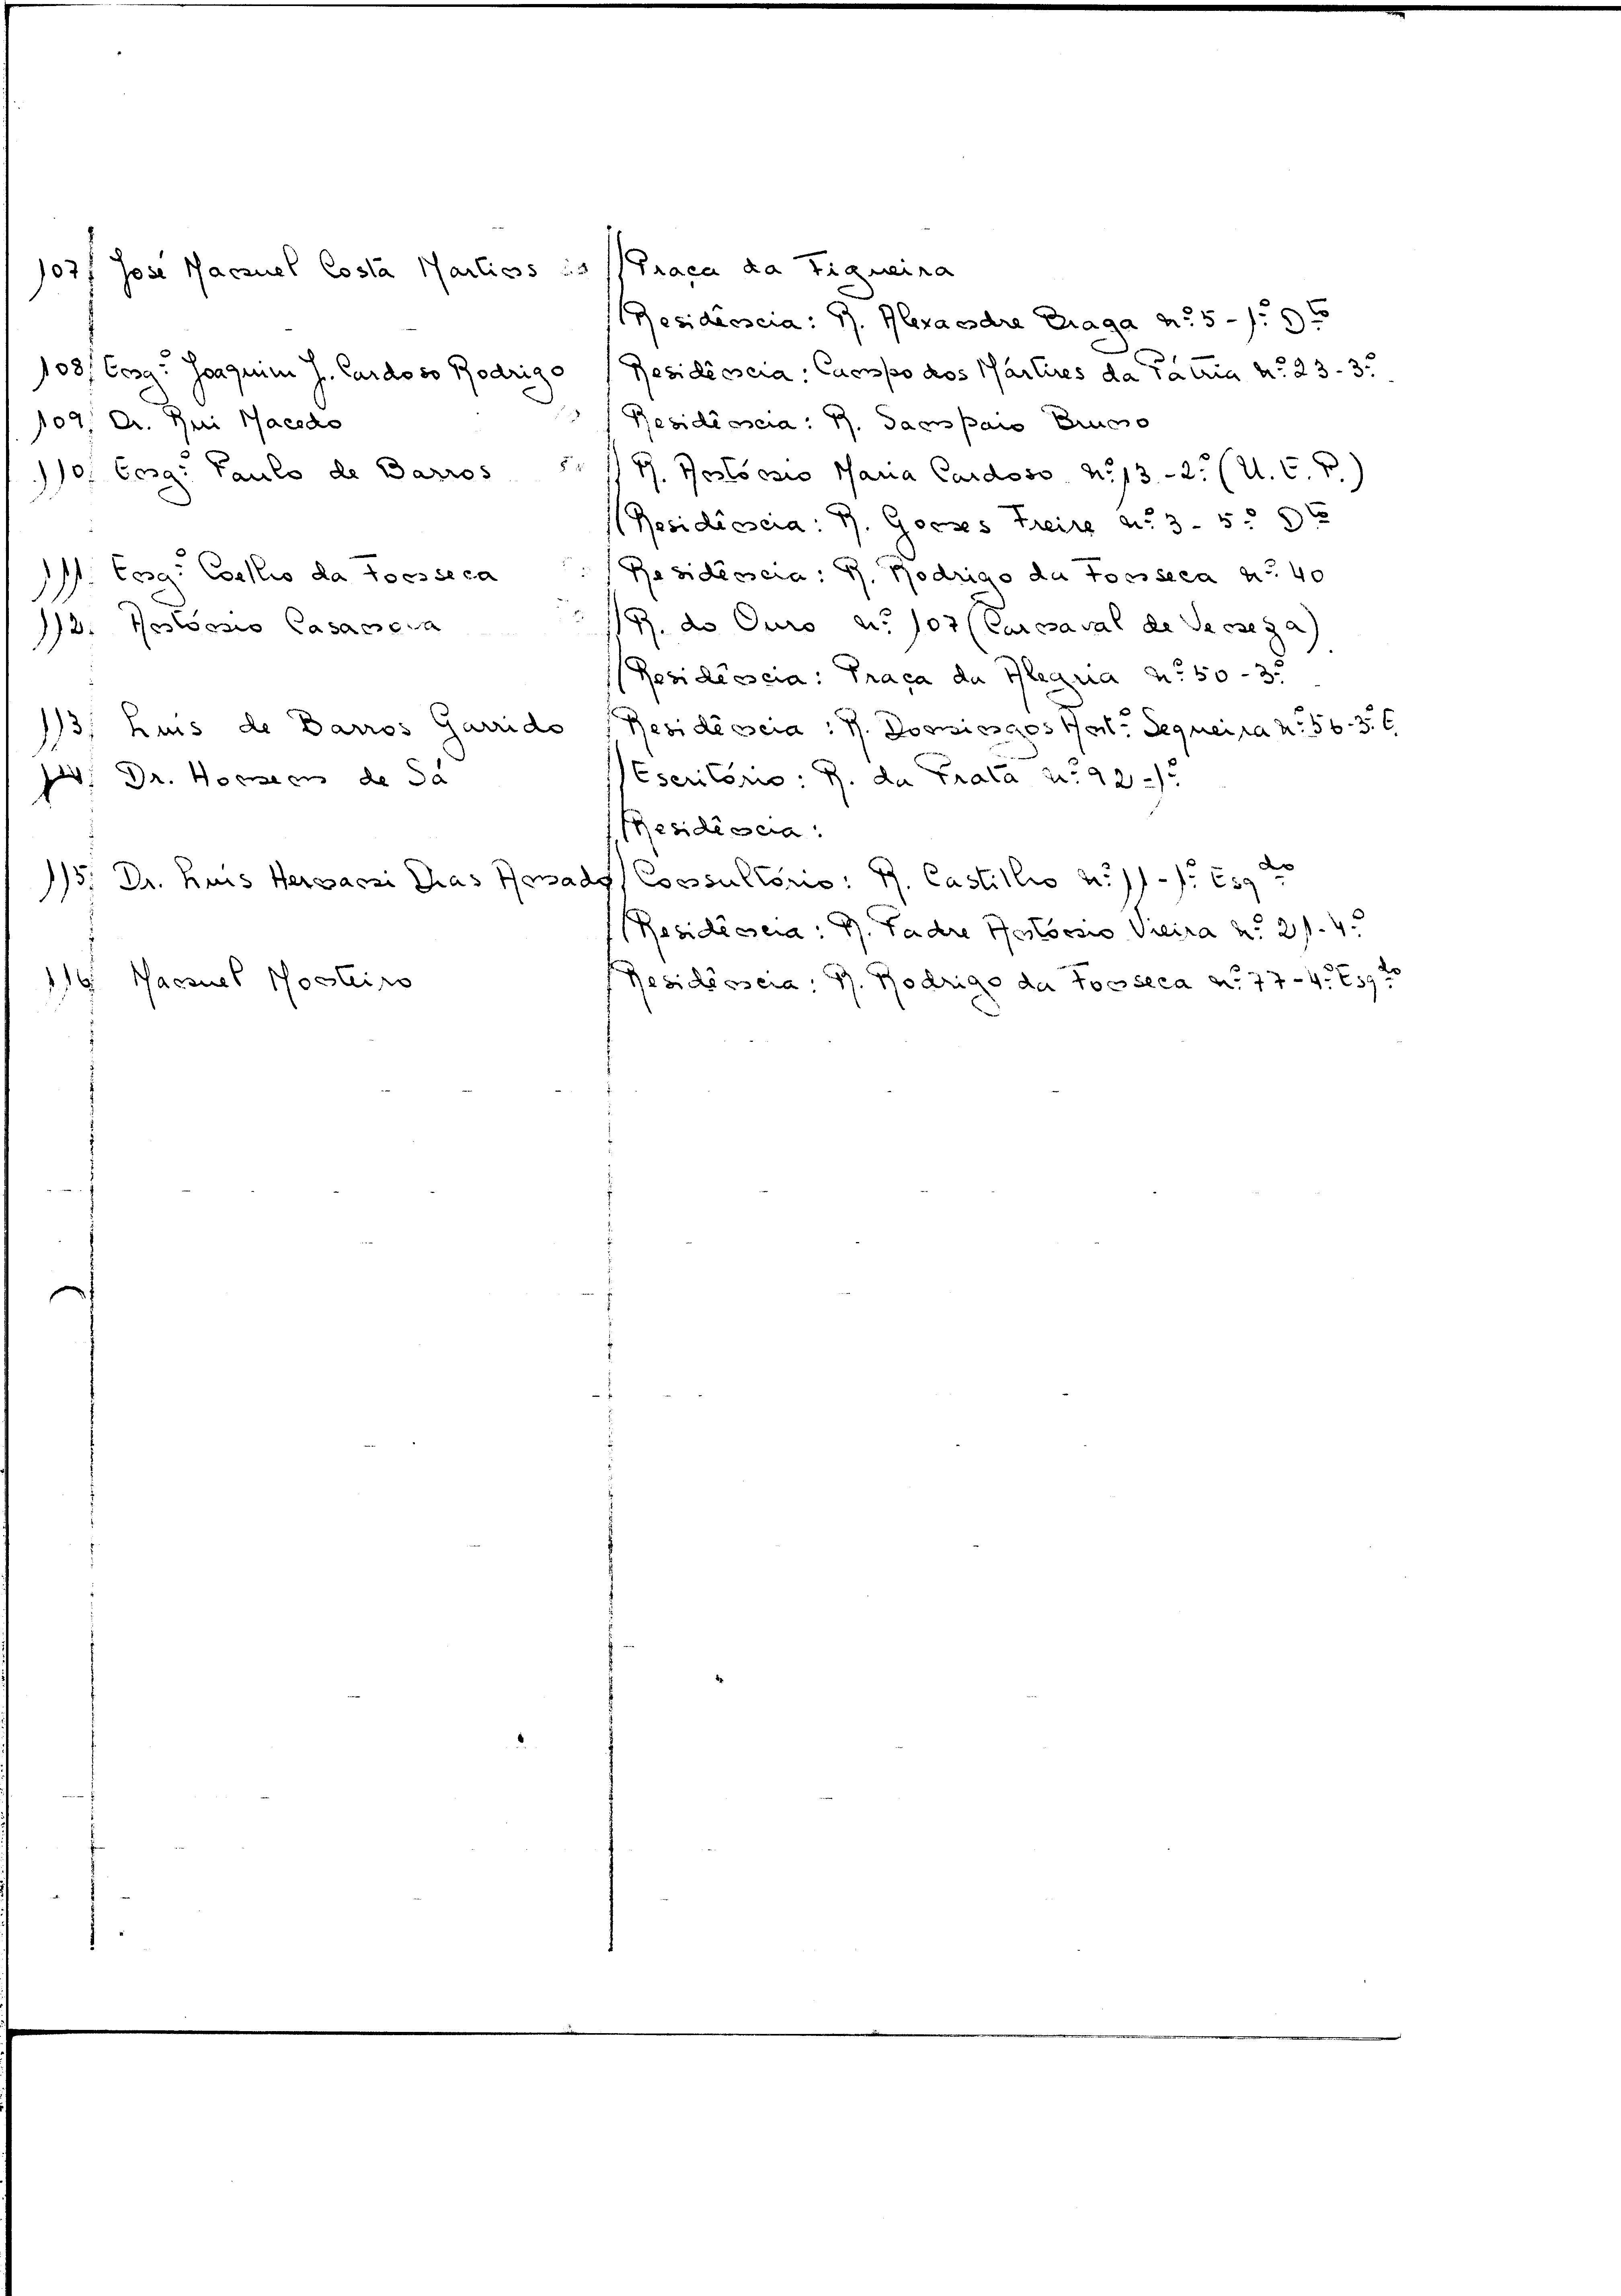 107 José Manuel Costa Martins Praça da Figueira
Residência: R. Alexandre Braga nº 5 - 1º Dto
108 Engº Joaquim J. Cardoso Rodrigo Residência: Campo dos Mártires da Pátria nº 23 - 3º
109 Dr. Rui Macedo Residência: R. Sampaio Bruno
110 Engº Paulo de Barros R. António Maria Cardoso nº 13 - 2º (U. E. P.)
Residência: R. Gomes Freire nº 3 - 5º Dto
111 Engº Coelho da Fonseca Residência: R. Rodrigo da Fonseca nº 40
112. António Casanova R. do Ouro nº 107 (Carnaval de Veneza)
Residência: Praça da Alegria nº 50 - 3º
113 Luis de Barros Garrido Residência: R. Domingos Antº Sequeira nº 56 - 3º E.
114 Dr. Homem de Sá Escritório: R. da Prata nº 92 - 1º
Residência:
115 Dr. Luis Hernani Dias Amado Consultório: R. Castilho nº 11 - 1º Esqdo
Residência: R. Padre António Vieira nº 21 - 4º
116 Manuel Monteiro Residência: R. Rodrigo da Fonseca nº 77 - 4º Esqdo